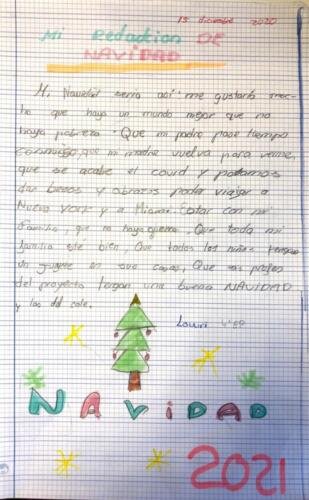 15 diciembre 2020
Mi Redaction DE
NAVIDAD
Mi Navidad sería así: me gustaría muc-
ho que haya un mundo mejor que no
haya pobreza. Que mi padre pase tiempo
conmigo, que mi madre vuelva para verme,
que se acabe el covid y podamos
dar besos y abrazos poder viajar a
Nueva York y a Miami. Estar con mi
familia, que no haya guerra. Que toda mi
familia esté bien. Que todos los niños tengan
un juguete en sus casas, Que mis profes
del proyecto tengan una buena NAVIDAD
y las del cole.
4ºEP
NAViDAD
2021